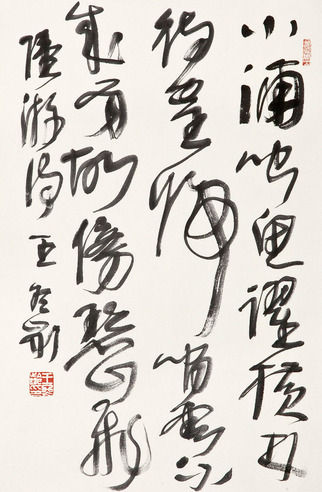 小浦聞魚躍橫林
待鶴歸閒雲不
成雨故傍碧山飛
陸游詩 王冬齡